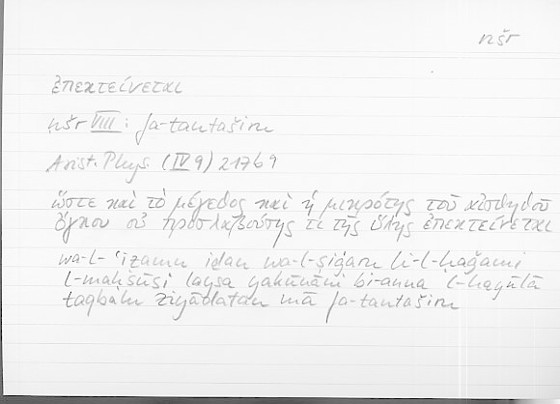 nšr
ἐπεκτείνεται
nšr VIII: fa-tantaširu
Arist. Phys. (IV 9) 217b9
ὥστε καὶ τὸ μέγεθος καὶ ἡ μικρότης τοῦ αἰσθητοῦ
ὄγκου οὐ προσλαβούσης τι τῆς ὕλης ἐπεκτείνεται
wa-l-ʿiẓamu iḏan wa-l-ṣiġaru li-l-ḥaǧami
l-maḥsūsi laysa yakūnāni bi-anna l-hayūlā
taqbalu ziyādatan mā fa-tantaširu